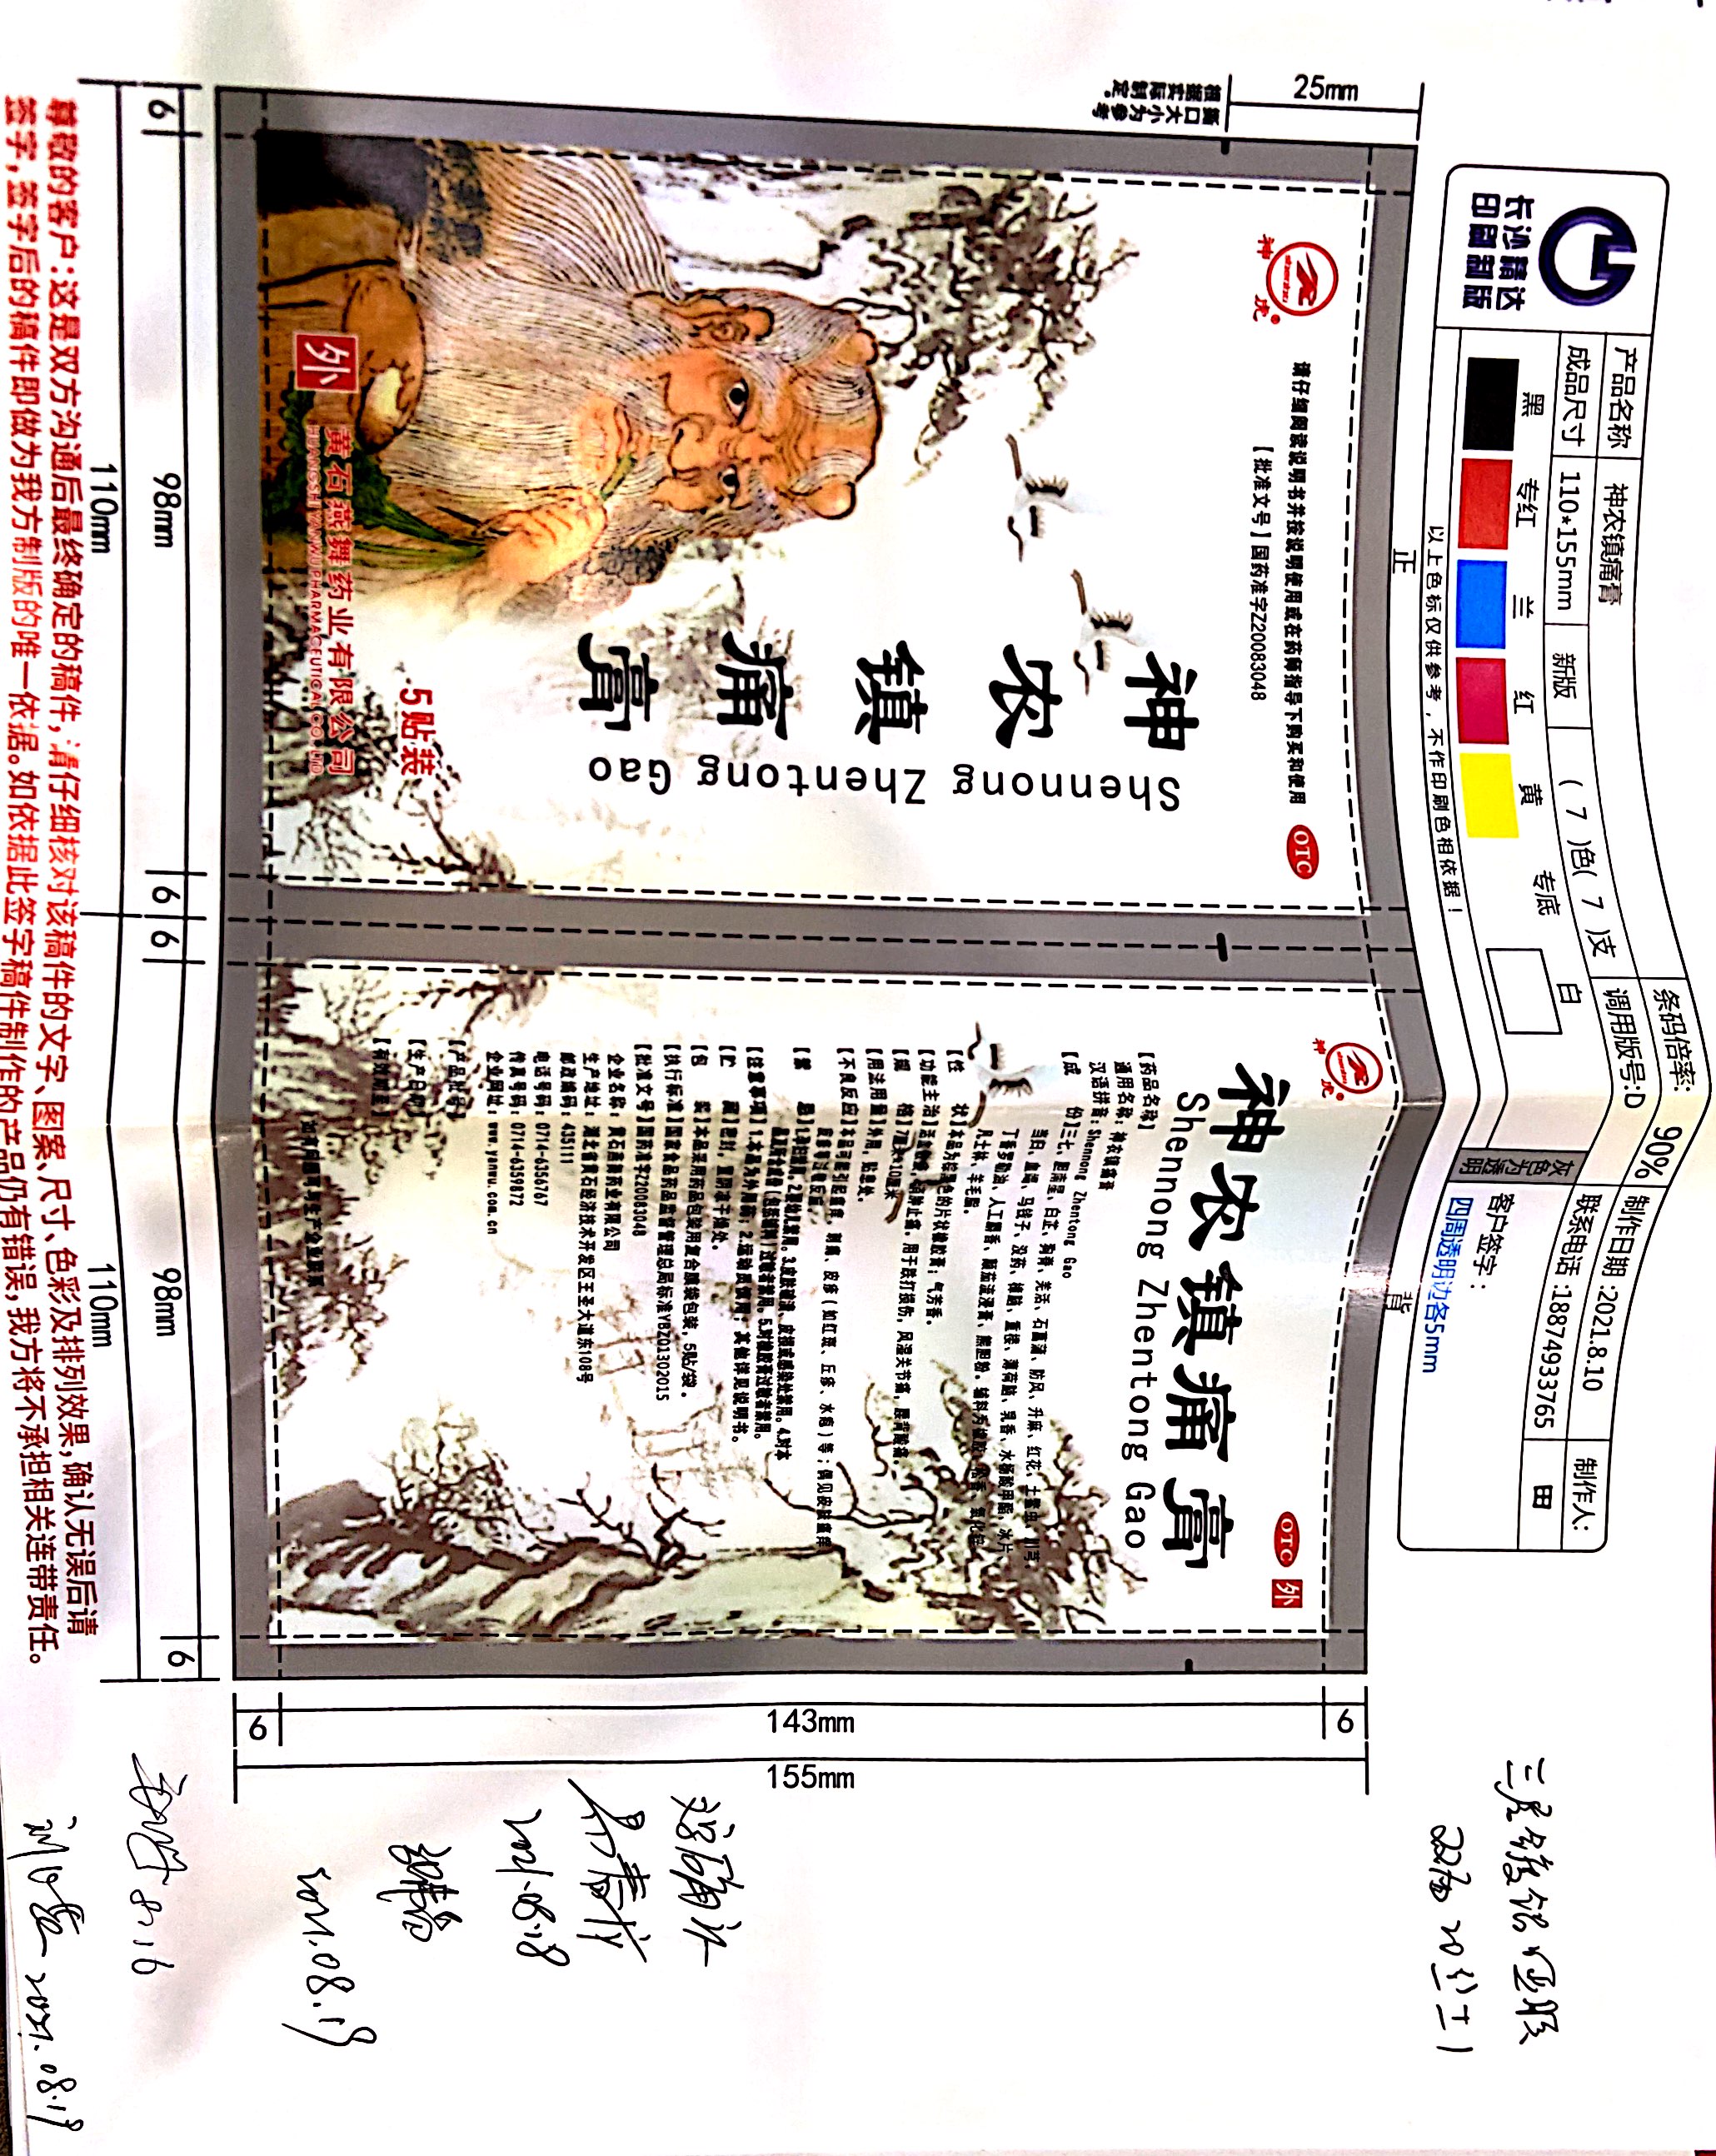 长沙精达
印刷制版
产品名称 神农镇痛膏
条码倍率: 90%
制作日期:2021.8.10
制作人:
成品尺寸 110*155mm 新版 ( 7 )色( 7 )支
调用版号:D
联系电话:18874933765
田
黑 专红 兰 红 黄 专底 白
灰色为透明
客户签字:
四周透明边各5mm
以上色标仅供参考,不作印刷色相依据!
正
背
25mm
撕口大小为参考
根据实际制定。
神虎®
shenhu
请仔细阅读说明书并按说明使用或在药师指导下购买和使用
OTC
【批准文号】国药准字Z20083048
神农镇痛膏
Shennong Zhentong Gao
5贴装
外
黄石燕舞药业有限公司
HUANGSHI YANWU PHARMACEUTICAL CO.,LTD
神虎®
OTC 外
神农镇痛膏
Shennong Zhentong Gao
【药品名称】
通用名称:神农镇痛膏
汉语拼音:Shennong Zhentong Gao
【成 份】三七、胆南星、白芷、狗脊、羌活、石菖蒲、防风、升麻、红花、土鳖虫、川芎、
当归、血竭、马钱子、没药、樟脑、重楼、薄荷脑、乳香、水杨酸甲酯、冰片、
丁香罗勒油、人工麝香、颠茄流浸膏、熊胆粉。辅料为橡胶、松香、氧化锌、
凡士林、羊毛脂。
【性 状】本品为棕黑色的片状橡胶膏;气芳香。
【功能主治】活血散瘀,消肿止痛。用于跌打损伤,风湿关节痛,腰背酸痛。
【规 格】7厘米*10厘米
【用法用量】外用,贴患处。
【不良反应】本品可能引起瘙痒、刺痛、皮疹(如红斑、丘疹、水疱)等;偶见皮肤瘙痒、
皮疹等过敏反应。
【禁 忌】1.孕妇禁用。2.婴幼儿禁用。3.皮肤破溃、皮损或感染处禁用。4.对本
品及所含成份(包括辅料)过敏者禁用。5.对橡胶膏过敏者禁用。
【注意事项】1.本品为外用药;2.运动员慎用;其他详见说明书。
【贮 藏】密封,置阴凉干燥处。
【包 装】本品采用药品包装用复合膜袋包装,5贴/袋。
【执行标准】国家食品药品监督管理总局标准YBZ01302015
【批准文号】国药准字Z20083048
企业名称:黄石燕舞药业有限公司
生产地址:湖北省黄石经济技术开发区王圣大道东108号
邮政编码:435111
电话号码:0714-6356767
传真号码:0714-6359872
企业网址:www.yanwu.com.cn
【产品批号】
【生产日期】
【有效期至】
如有问题可与生产企业联系
6
98mm
6
6
98mm
6
110mm
110mm
6
143mm
6
155mm
尊敬的客户:这是双方沟通后最终确定的稿件,请仔细核对该稿件的文字、图案、尺寸、色彩及排列效果,确认无误后请
签字,签字后的稿件即做为我方制版的唯一依据。如依据此签字稿件制作的产品仍有错误,我方将不承担相关连带责任。
2021.08.18
2021.08.19
8.16
2021.08.19